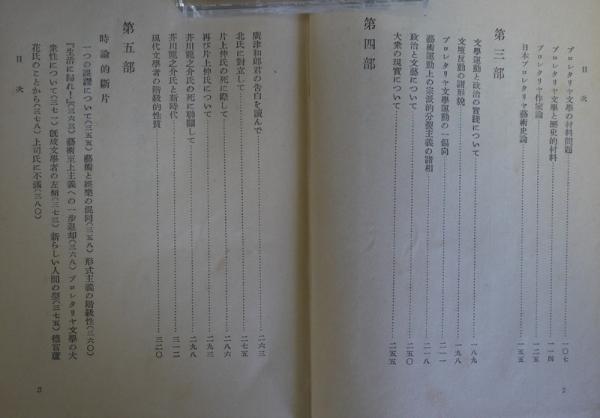 目次
プロレタリヤ文學の材料問題……一〇七
プロレタリヤ文學と歷史的材料……一一四
プロレタリヤ作家論……一二五
日本プロレタリヤ藝術史論……一五五
第三部
文學運動と政治の實踐について……一八九
文壇反動の諸形貌……一九八
プロレタリヤ文學運動の一傾向……二一一
藝術運動上の宗派的分裂主義の諸相……二一八
政治と文藝について……二五〇
大衆の現實について……二五五
第四部
2
廣津和郎君の告白を讀んで……二六三
北氏に對立して……二七五
片上伸氏の死に際して……二八六
再び片上伸氏について……二九三
芥川龍之介氏の死に聯關して……二九五
芥川龍之介氏と新時代……三一二
現代文學者の階級的性質……三二〇
第五部
時論的斷片
一つの誤謬について(三五五) 藝術と娯樂の混同(三五八) 形式主義の階級性(三六〇)
『生活に歸れ!』(三六三) 藝術至上主義への一步退却(三六八) プロレタリヤ文學の大
衆性について(三七一) 旣成文學者の左傾(三七三) 新らしい人間の型(三七五) 德富蘆
花氏のことから(三七八) 上司氏に不滿(三八〇)
目次
3